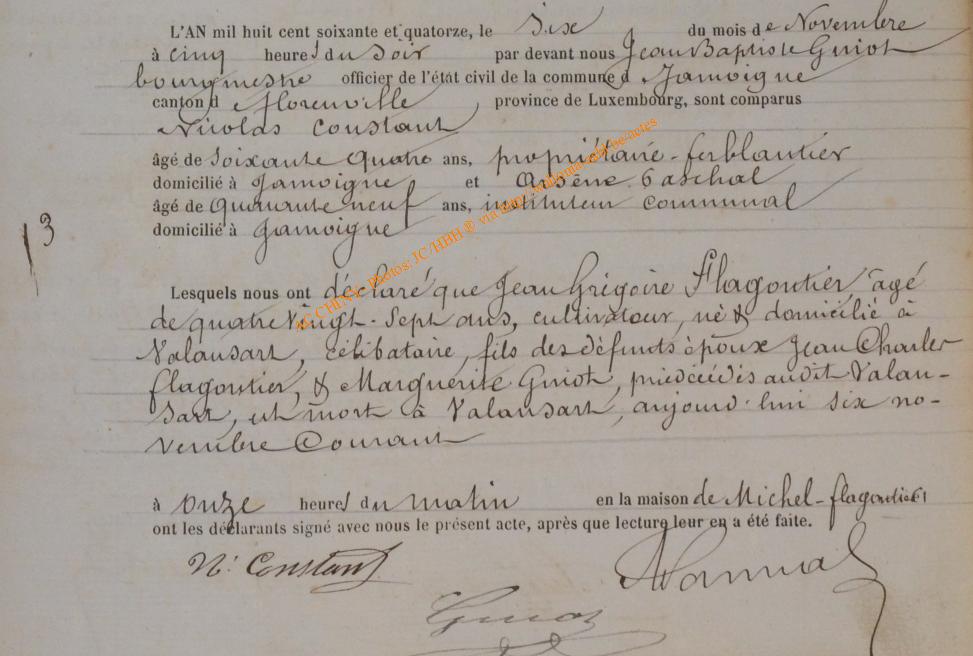 L'AN mil huit cent soixante et quatorze, le Six du mois de Novembre
à cinq heures du soir par devant nous Jean Baptiste Guiot
bourgmestre officier de l'état civil de la commune d Jamoigne
canton d florenville, province de Luxembourg, sont comparus
Nicolas Constant
âgé de soixante quatre ans, propriétaire - ferblantier
domicilié à Jamoigne et Arsène
âgé de quarante neuf ans, instituteur communal
domicilié à Jamoigne
13
Lesquels nous ont déclaré que Jean Grégoire Flagontier âgé
de quatre vingt-sept ans, cultivateur, né & domicilié à
Valansart, célibataire, fils des défunts époux Jean Charles
flagontier, & Marguerite Guiot, prédécédés audit Valan-
sart, est mort à Valansart, aujourd'hui six no-
vembre Courant
à onze heures du matin en la maison de Michel - flagontier
ont les déclarants signé avec nous le présent acte, après que lecture leur en a été faite.
N. Constant
Guiot
Photos: JC/HBH ® via